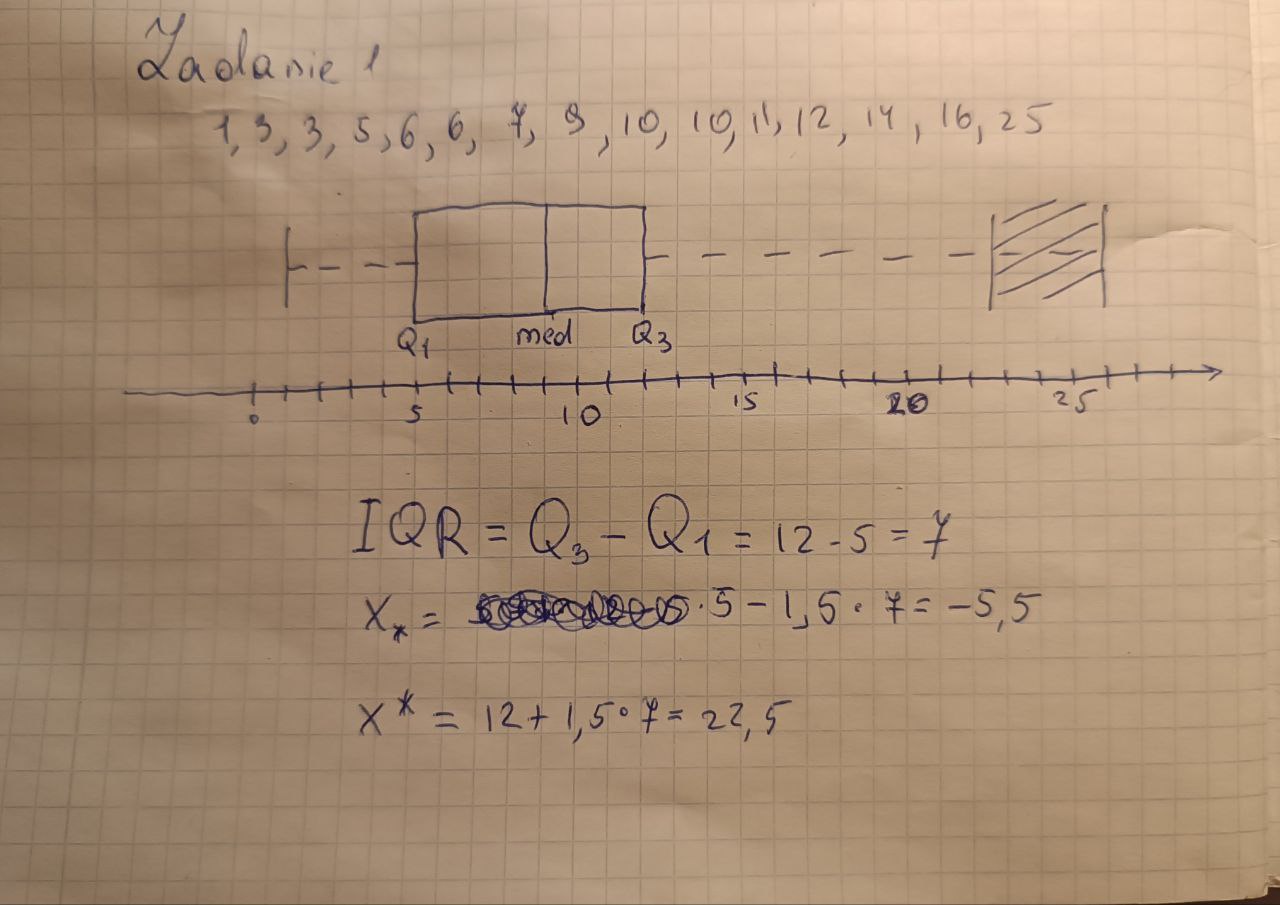 Zadanie 1
1, 3, 3, 5, 6, 6, 7, 9, 10, 10, 11, 12, 14, 16, 25
Q1 med Q3
0 5 10 15 20 25
IQR = Q3 - Q1 = 12 - 5 = 7
X* = · 5 - 1,5 · 7 = -5,5
X* = 12 + 1,5 · 7 = 22,5